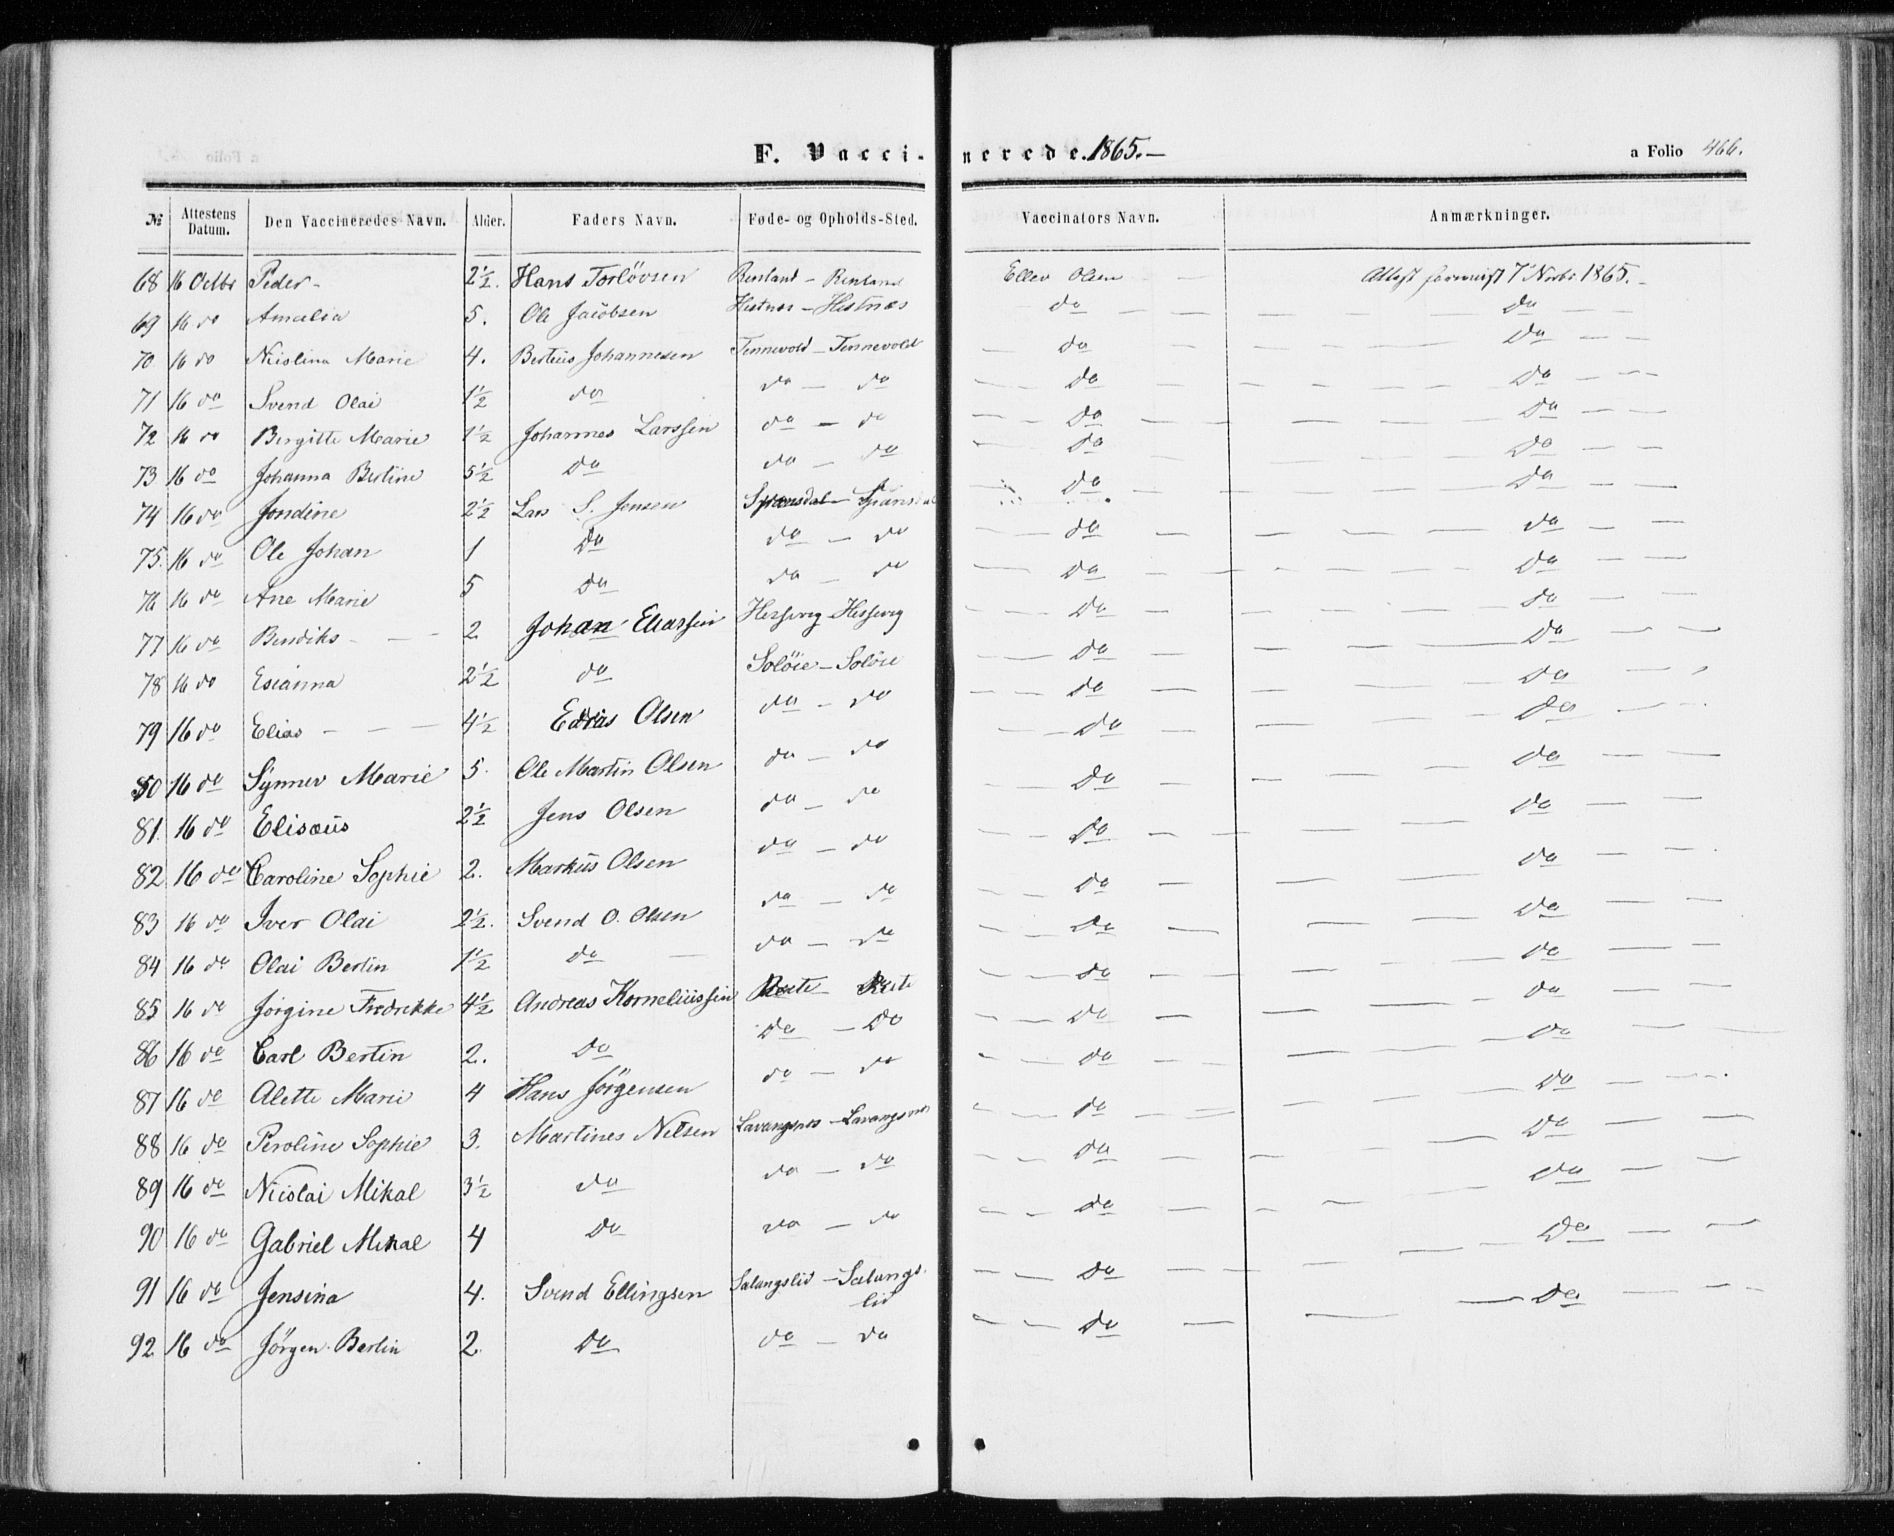 F. Vaccinerede. 1865.— a Folio 466.
№ Attestens Datum. Den Vaccineredes Navn. Alder. Faders Navn. Føde- og Opholds-Sted. Vaccinators Navn. Anmærkninger.
68 16 Octbr Peder - 2½. Hans Torlövsen Renland - Renland Ellev Olsen Attest 7' Novbr. 1865.-
69 16 do Amalia 5. Ole Jacobsen Hestnes - Hestnæs do do
70 16 do Nicolina Marie 4. Berteus Johannesen Tennevold - Tennevold do do
71 16 do Svend Olai 1½ do do - do do do
72 16 do Birgitte Marie 1½ Johannes Larssen do - do do do
73 16 do Johanna Bertine 5½ do do - do do do
74 16 do Jondine 2½ Lars S. Jensen Spansdal - Spansdal do do
75. 16 do Ole Johan 1 do do - do do do
76 16 do Ane Marie 5 do do - do do do
77 16 do Bendiks - - - 2 Johan Eliassen Hesjevig - Hesjevig do do
78 16 do Esianna 2½ do Solöie - Solöie do do
79 16 do Elias - - - 4½ Olsen do - do do do
80 16 do Synnev Marie 5. Ole Martin Olsen do - do do do
81. 16 do Elisæus 2½ Jens Olsen do - do do do
82 16 do Caroline Sophie 2. Markus Olsen do - do do do
83 16 do Iver Olai 2½. Svend O. Olsen do - do do do
84 16 do Olai Bertin 1½ do do - do do do
85 16 do Jørgine Fredrekke 4½ Andreas Korneliussen do do
86 16 do Carl Bertin 2. do do - do do do
87 16 do Alette Marie 4 Hans Jørgensen do - do do do
88 16 do Peroline Sophie 3. Martines Nilsen Lavangsnes - Lavangsnes do do
89 16 do Nicolai Mikal 3½ do do - do do do
90 16 do Gabriel Mikal 4 do do - do do do
91 16 do Jensina 4. Svend Ellingsen Salangslid - Salangslid do do
92 16 do Jørgen Bertin 2. do do - do do do